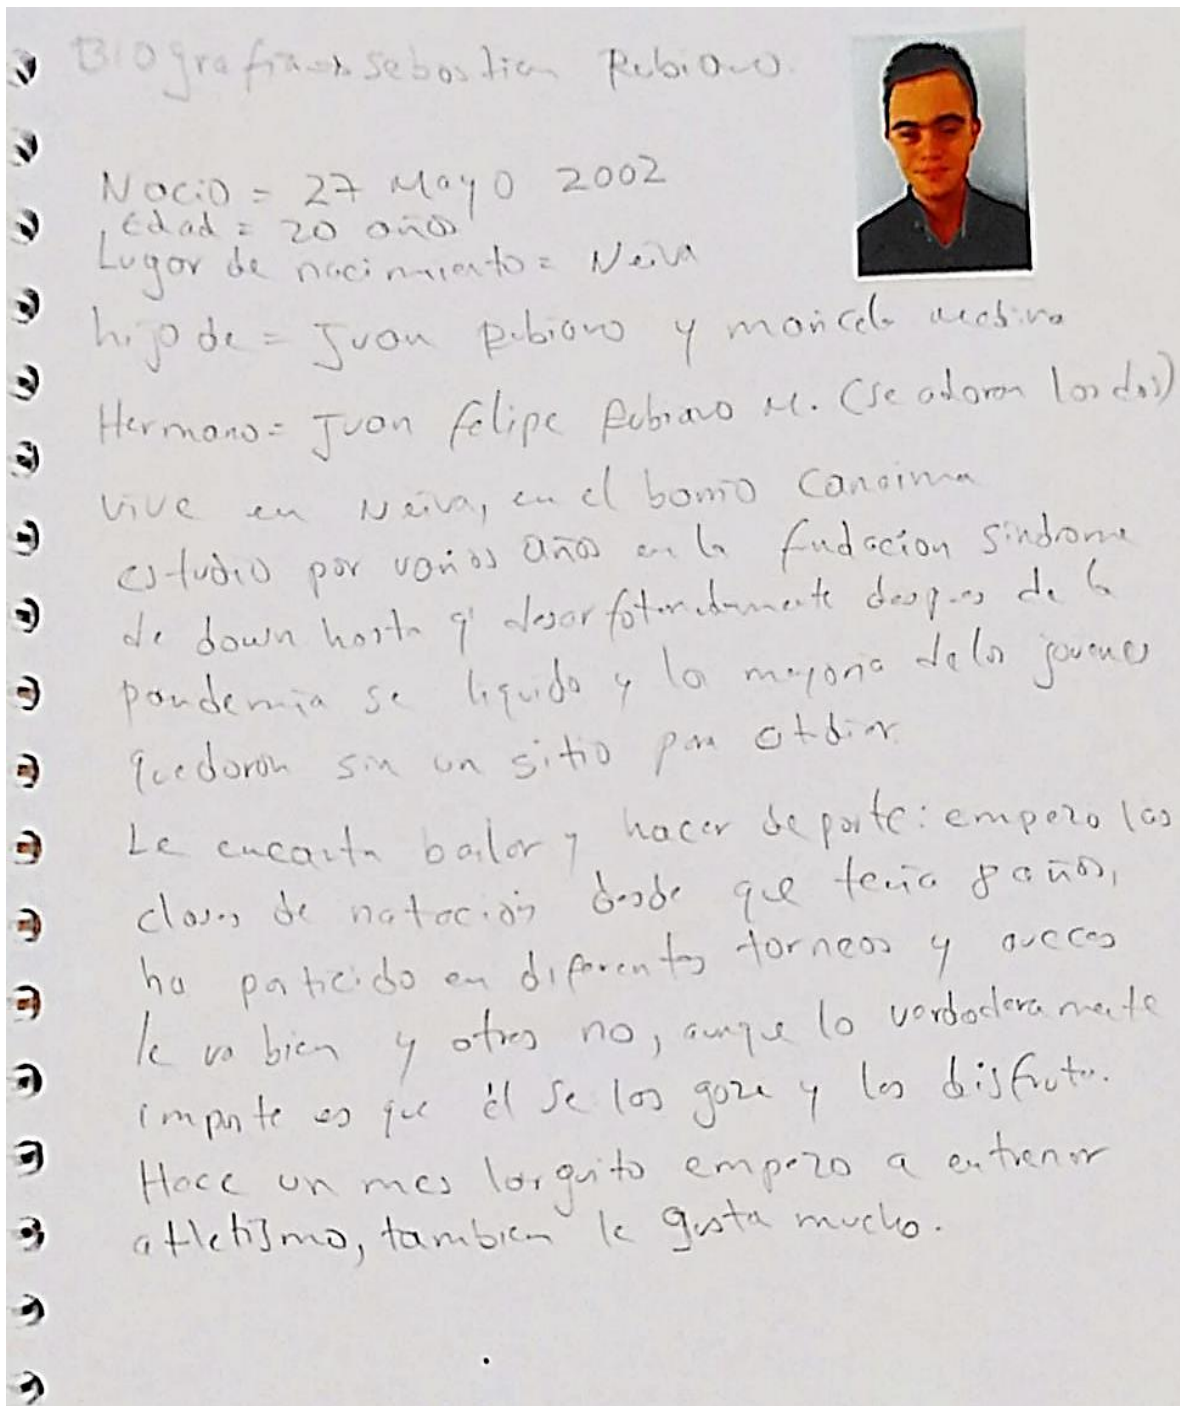 Biografia Sebastian Rubiano.
Nacio = 27 Mayo 2002
Edad = 20 años
Lugar de nacimiento = Neiva
hijo de = Juan Rubiano y maricela medina
Hermano = Juan felipe Rubiano M. (se adoran los dos)
vive en Neiva, en el barrio Canaima
estudio por varios años en la fudacion sindrome
de down hasta q' desafortunadamente despues de la
pandemia se liquido y la mayoria de los jovenes
quedaron sin un sitio para estudiar.
Le encanta bailar y hacer deporte: empezo las
clases de natación desde que tenia 8 años,
ha participado en diferentes torneos y aveces
le va bien y otras no, aunque lo verdaderamente
importe es que él se los goza y los disfruta.
Hace un mes larguito empezo a entrenar
atletismo, tambien le gusta mucho.